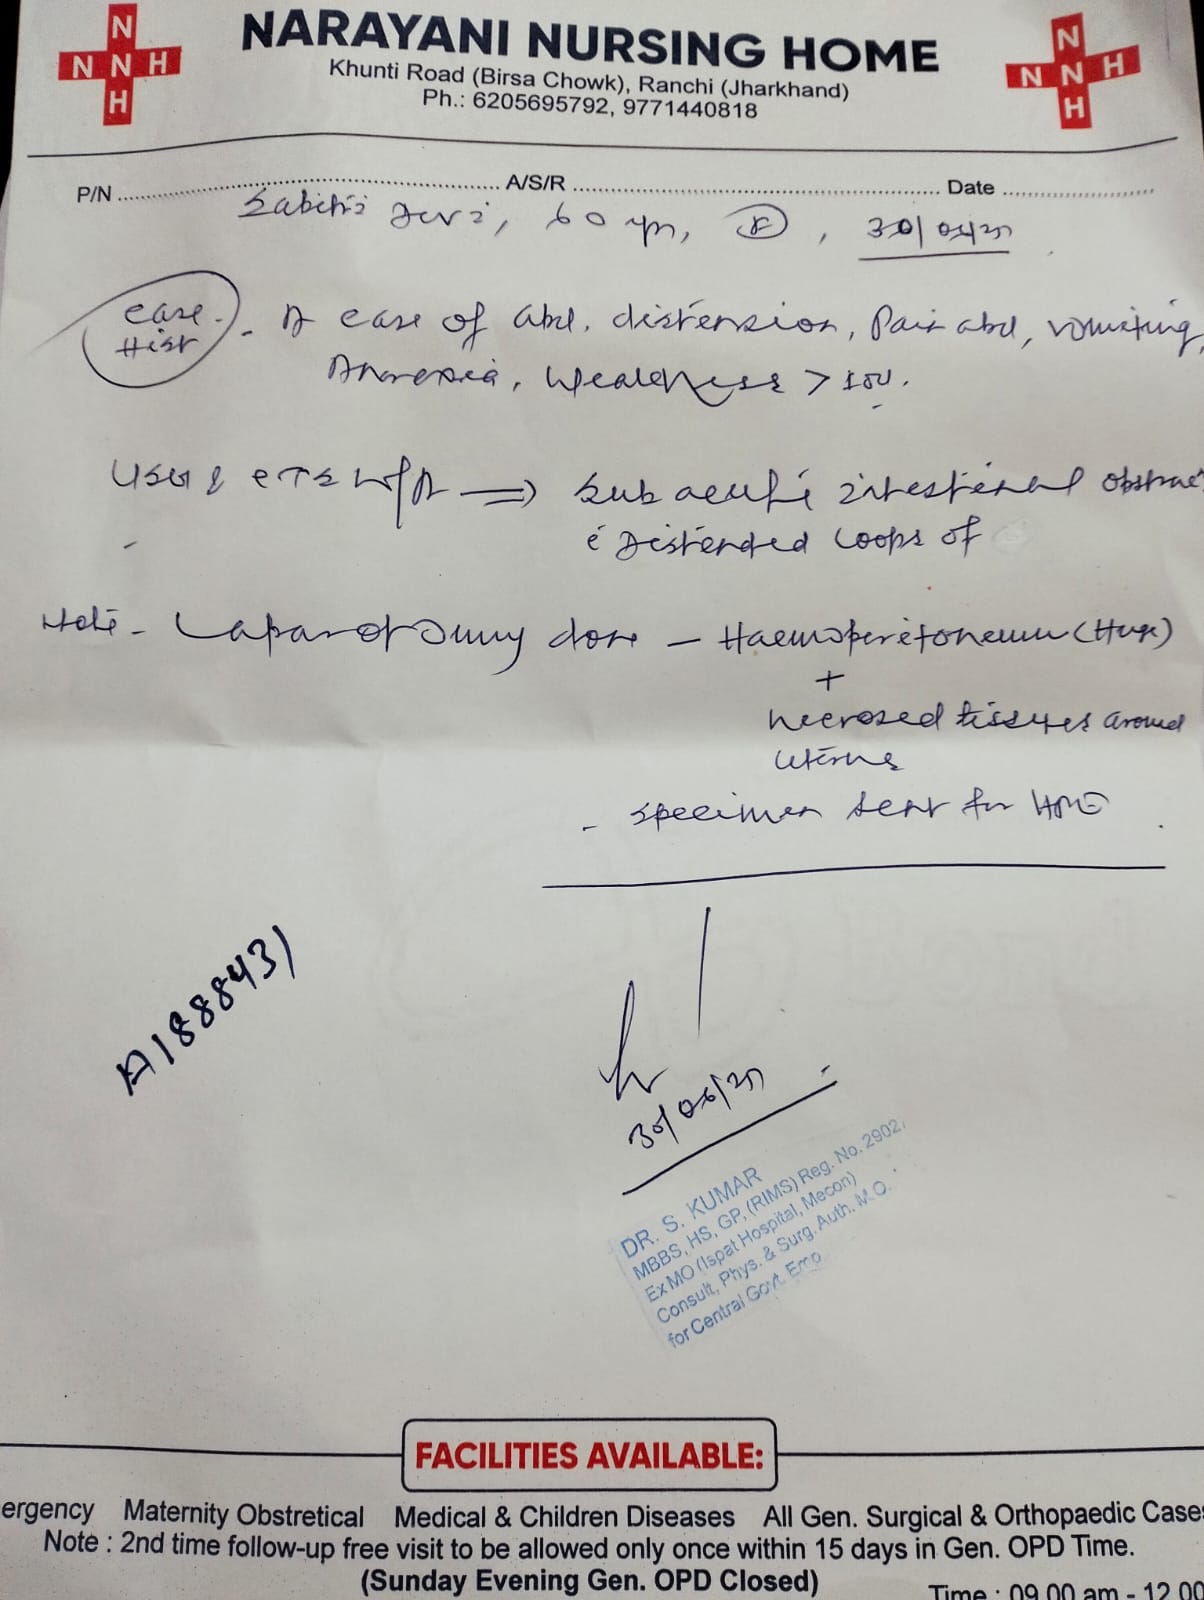 N
N N H
H
NARAYANI NURSING HOME
Khunti Road (Birsa Chowk), Ranchi (Jharkhand)
Ph.: 6205695792, 9771440818
N
N N H
H
P/N ........ A/S/R ........ Date ........
Devi, 60 yrs, F,
Case Hist - A case of abd. distension, Pain abd, vomiting,
Anorexia, Weakness >
USG & W/A ⇒ Sub acute intestinal obstruc
c̄ Distended loops of
Note - Laparotomy done - Haemoperitoneum (Huge)
+
necrosed tissues around
uterus
- Specimen sent for HPE
A1888431
DR. S. KUMAR
MBBS, HS, GP, (RIMS) Reg. No. 2902
Ex MO (Ispat Hospital, Mecon)
Consult, Phys. & Surg. Auth. M.O.
for Central Govt. Emp.
FACILITIES AVAILABLE:
ergency Maternity Obstretical Medical & Children Diseases All Gen. Surgical & Orthopaedic Cases
Note : 2nd time follow-up free visit to be allowed only once within 15 days in Gen. OPD Time.
(Sunday Evening Gen. OPD Closed)
Time : 09.00 am - 12.00